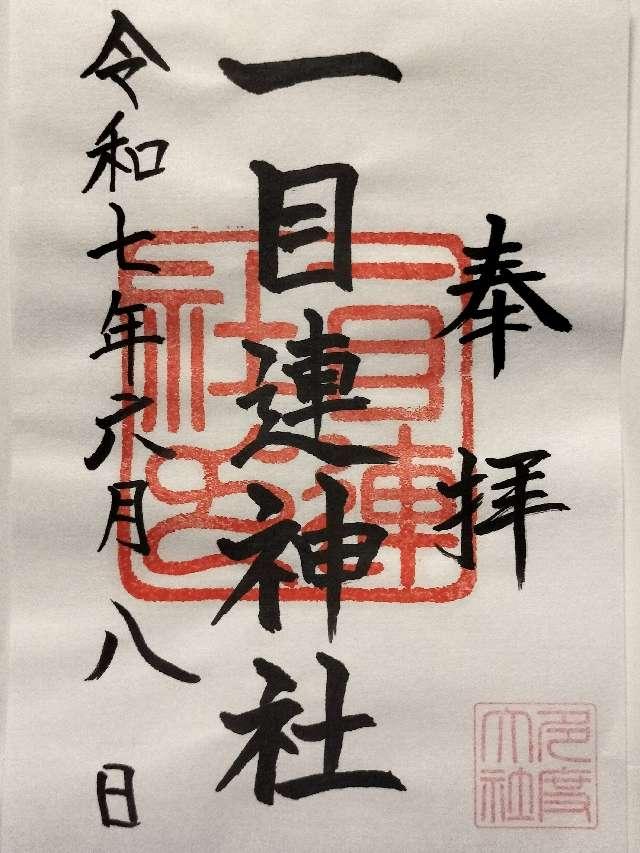 奉拝
一目連神社
令和七年六月八日
一目連社之印
多度大社